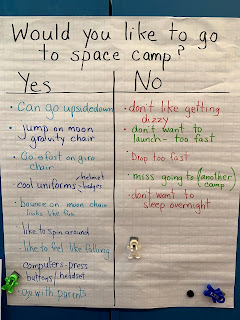 Would you like to go
to space camp?
Yes
• Can go upsidedown
• jump on moon
gravity chair
• Go fast on gyro
chair
• cool uniforms - helmet
- badges
• bounce on moon chair
looks like fun
• like to spin around
• like to feel like falling
• computers - press
buttons / headset
• go with parents
No
• don't like getting
dizzy
• don't want to
launch - too fast
• Drop too fast
• miss going to (another
camp)
• don't want to
sleep overnight